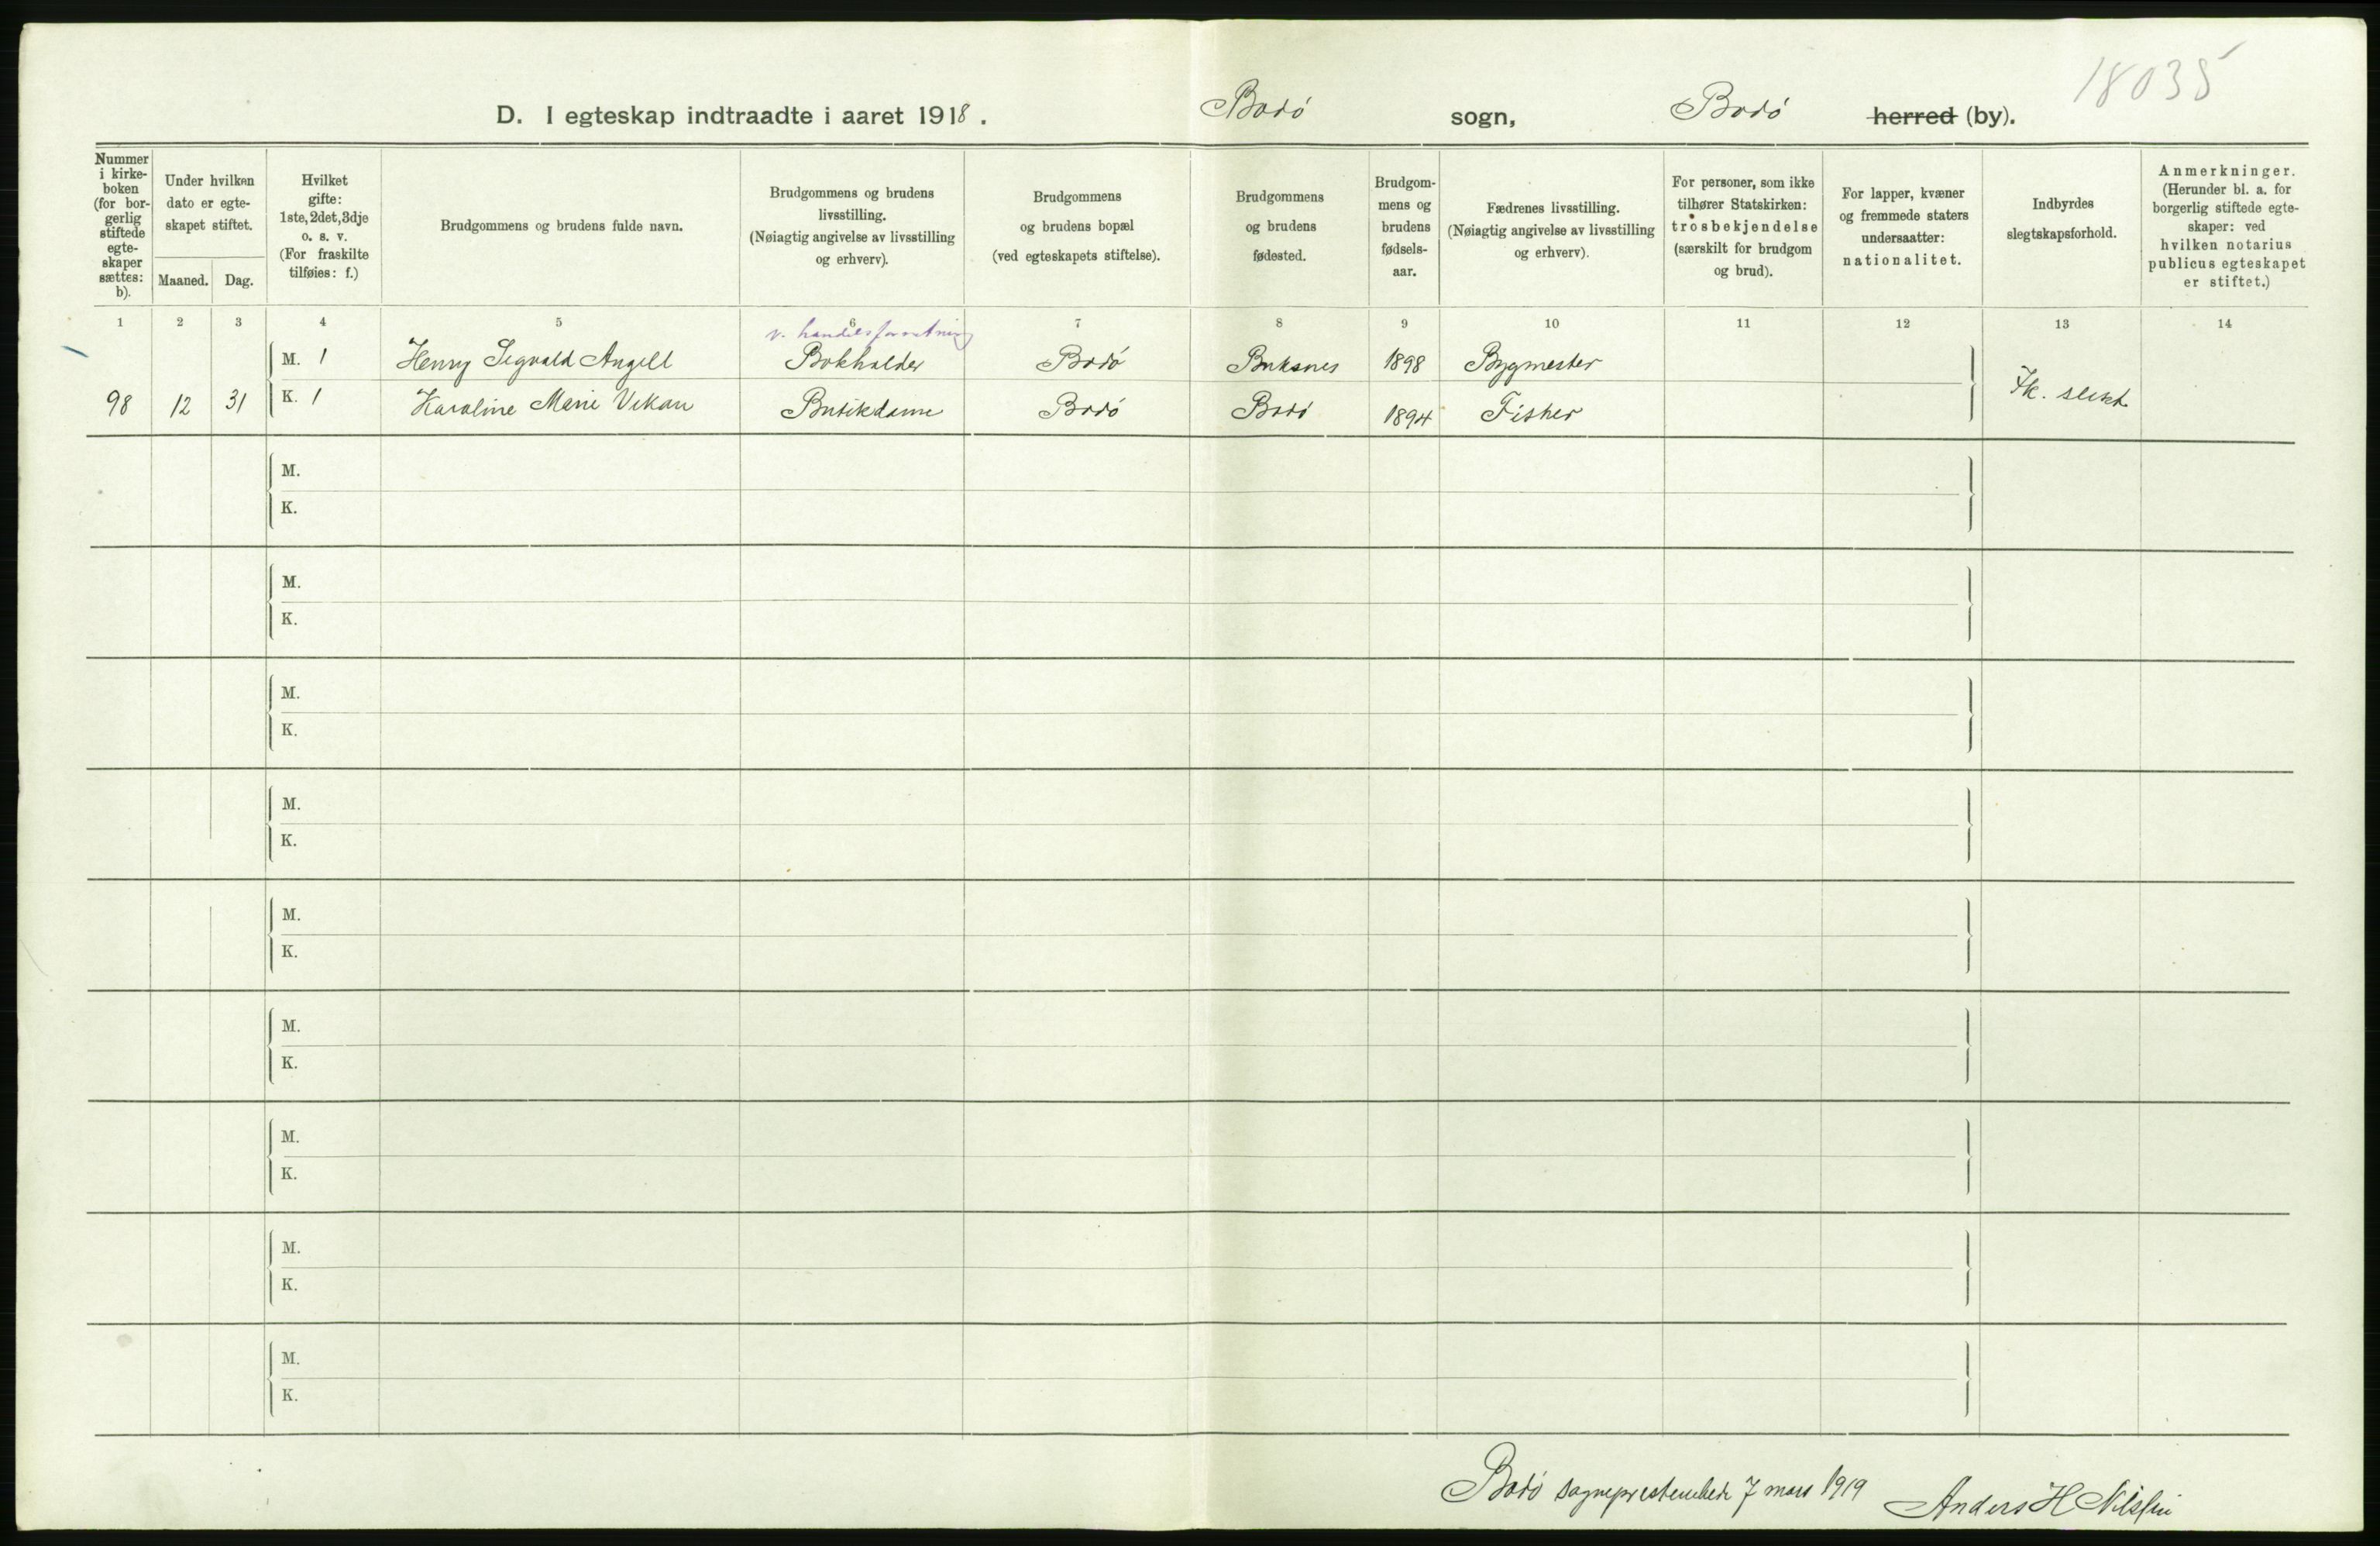 18035
D. I egteskap indtraadte i aaret 1918. Bodó sogn, Bodó herred (by).
Nummer i kirke-boken (for bor-gerlig stiftede egte-skaper sættes: b).
Under hvilken dato er egte-skapet stiftet.
Maaned. Dag.
Hvilket gifte: 1ste, 2det, 3dje o. s. v. (For fraskilte tilføies: f.)
Brudgommens og brudens fulde navn.
Brudgommens og brudens livsstilling. (Nøiagtig angivelse av livsstilling og erhverv).
Brudgommens og brudens bopæl (ved egteskapets stiftelse).
Brudgommens og brudens fødested.
Brudgom-mens og brudens fødsels-aar.
Fædrenes livsstilling. (Nøiagtig angivelse av livsstilling og erhverv).
For personer, som ikke tilhører Statskirken: trosbekjendelse (særskilt for brudgom og brud).
For lapper, kvæner og fremmede staters undersaatter: nationalitet.
Indbyrdes slegtskapsforhold.
Anmerkninger. (Herunder bl. a. for borgerlig stiftede egte-skaper: ved hvilken notarius publicus egteskapet er stiftet.)
1 2 3 4 5 6 7 8 9 10 11 12 13 14
v. handelsforretning
M. 1 Henry Sigvald Angell Bokholder Bodó Buksnes 1898 Bygmester
98 12 31 K. 1 Karoline Marie Vikan Butikdame Bodó Bodó 1894 Fisker Ik. slekt
M.
K.
M.
K.
M.
K.
M.
K.
M.
K.
M.
K.
M.
K.
M.
K.
M.
K.
Bodó sogneprestembede 7 mars 1919 Anders H